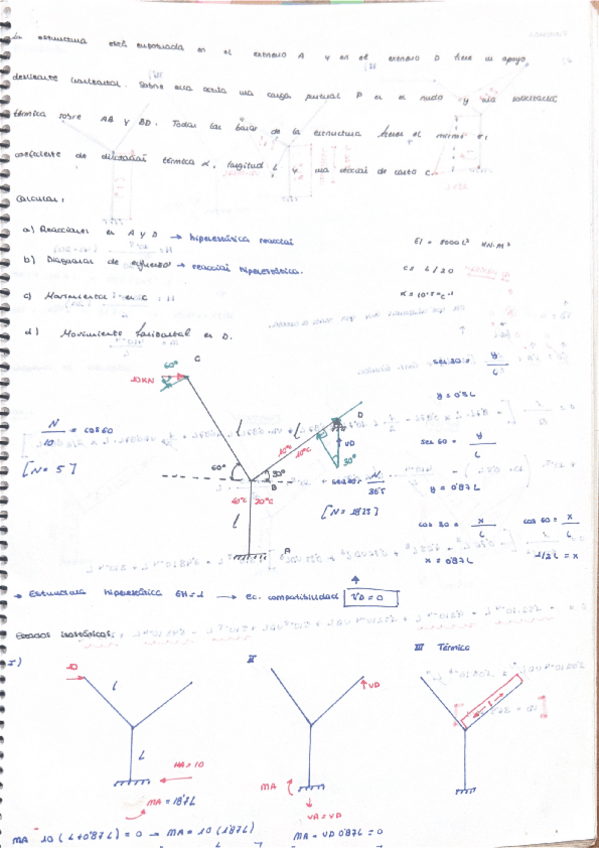 La estructura está empotrada en el extremo A y en el extremo D tiene un apoyo
deslizante horizontal. Sobre ella actúa una carga puntual P en el nudo y una
térmica sobre AB y BD. Todas las barras de la estructura tienen el mismo EI,
coeficiente de dilatación térmica α, longitud L y una sección de canto c.
Calcular:
a) Reacciones en A y D → hiperestática reacción
EI = 8000L² KN·M²
b) Diagramas de esfuerzo → reacción hiperestática.
c = L/20
c) Movimientos en C
α = 10⁻⁵ °C⁻¹
d) Movimiento horizontal en D.
60° C
10KN
sen 30 = y/L
y = 0'5L
N/10 = cos 60
[N = 5]
L
L
D
10°C
10°C
VD
30°
sen 60 = y/L
y = 0'87L
60°
30°
B
40°C 20°C
L
A
cos 30 = x/L
x = 0'87L
cos 60 = x/L
1/2 L = x
→ Estructura hiperestática GH=1 → Ec. compatibilidad VD=0
Estados isostáticos:
I)
II
III Térmica
10
L
L
HA=10
MA = 18'7L
VD
MA
VA=VD
MA - 10 (L+0'87L) = 0 → MA = 10 (1'87L)
MA - VD 0'87L = 0